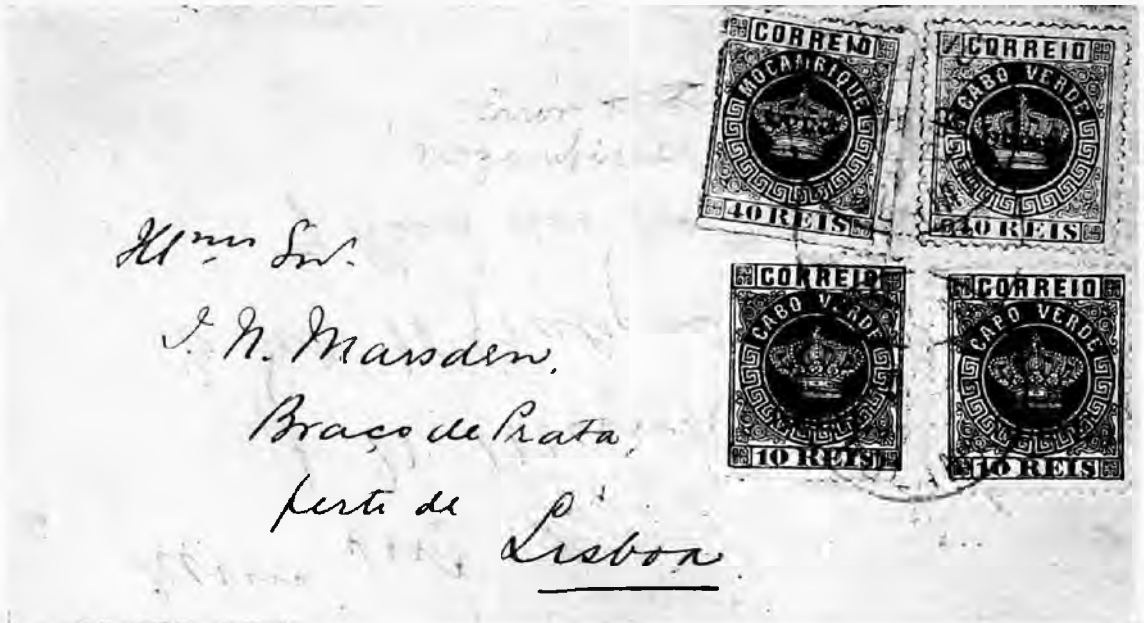 CORREIO
MOÇAMBIQUE
40 REIS
CORREIO
CABO VERDE
40 REIS
CORREIO
CABO VERDE
10 REIS
CORREIO
CABO VERDE
10 REIS
Illmo Snr.
J. N. Marsden,
Braço de Prata,
perto de
Lisboa